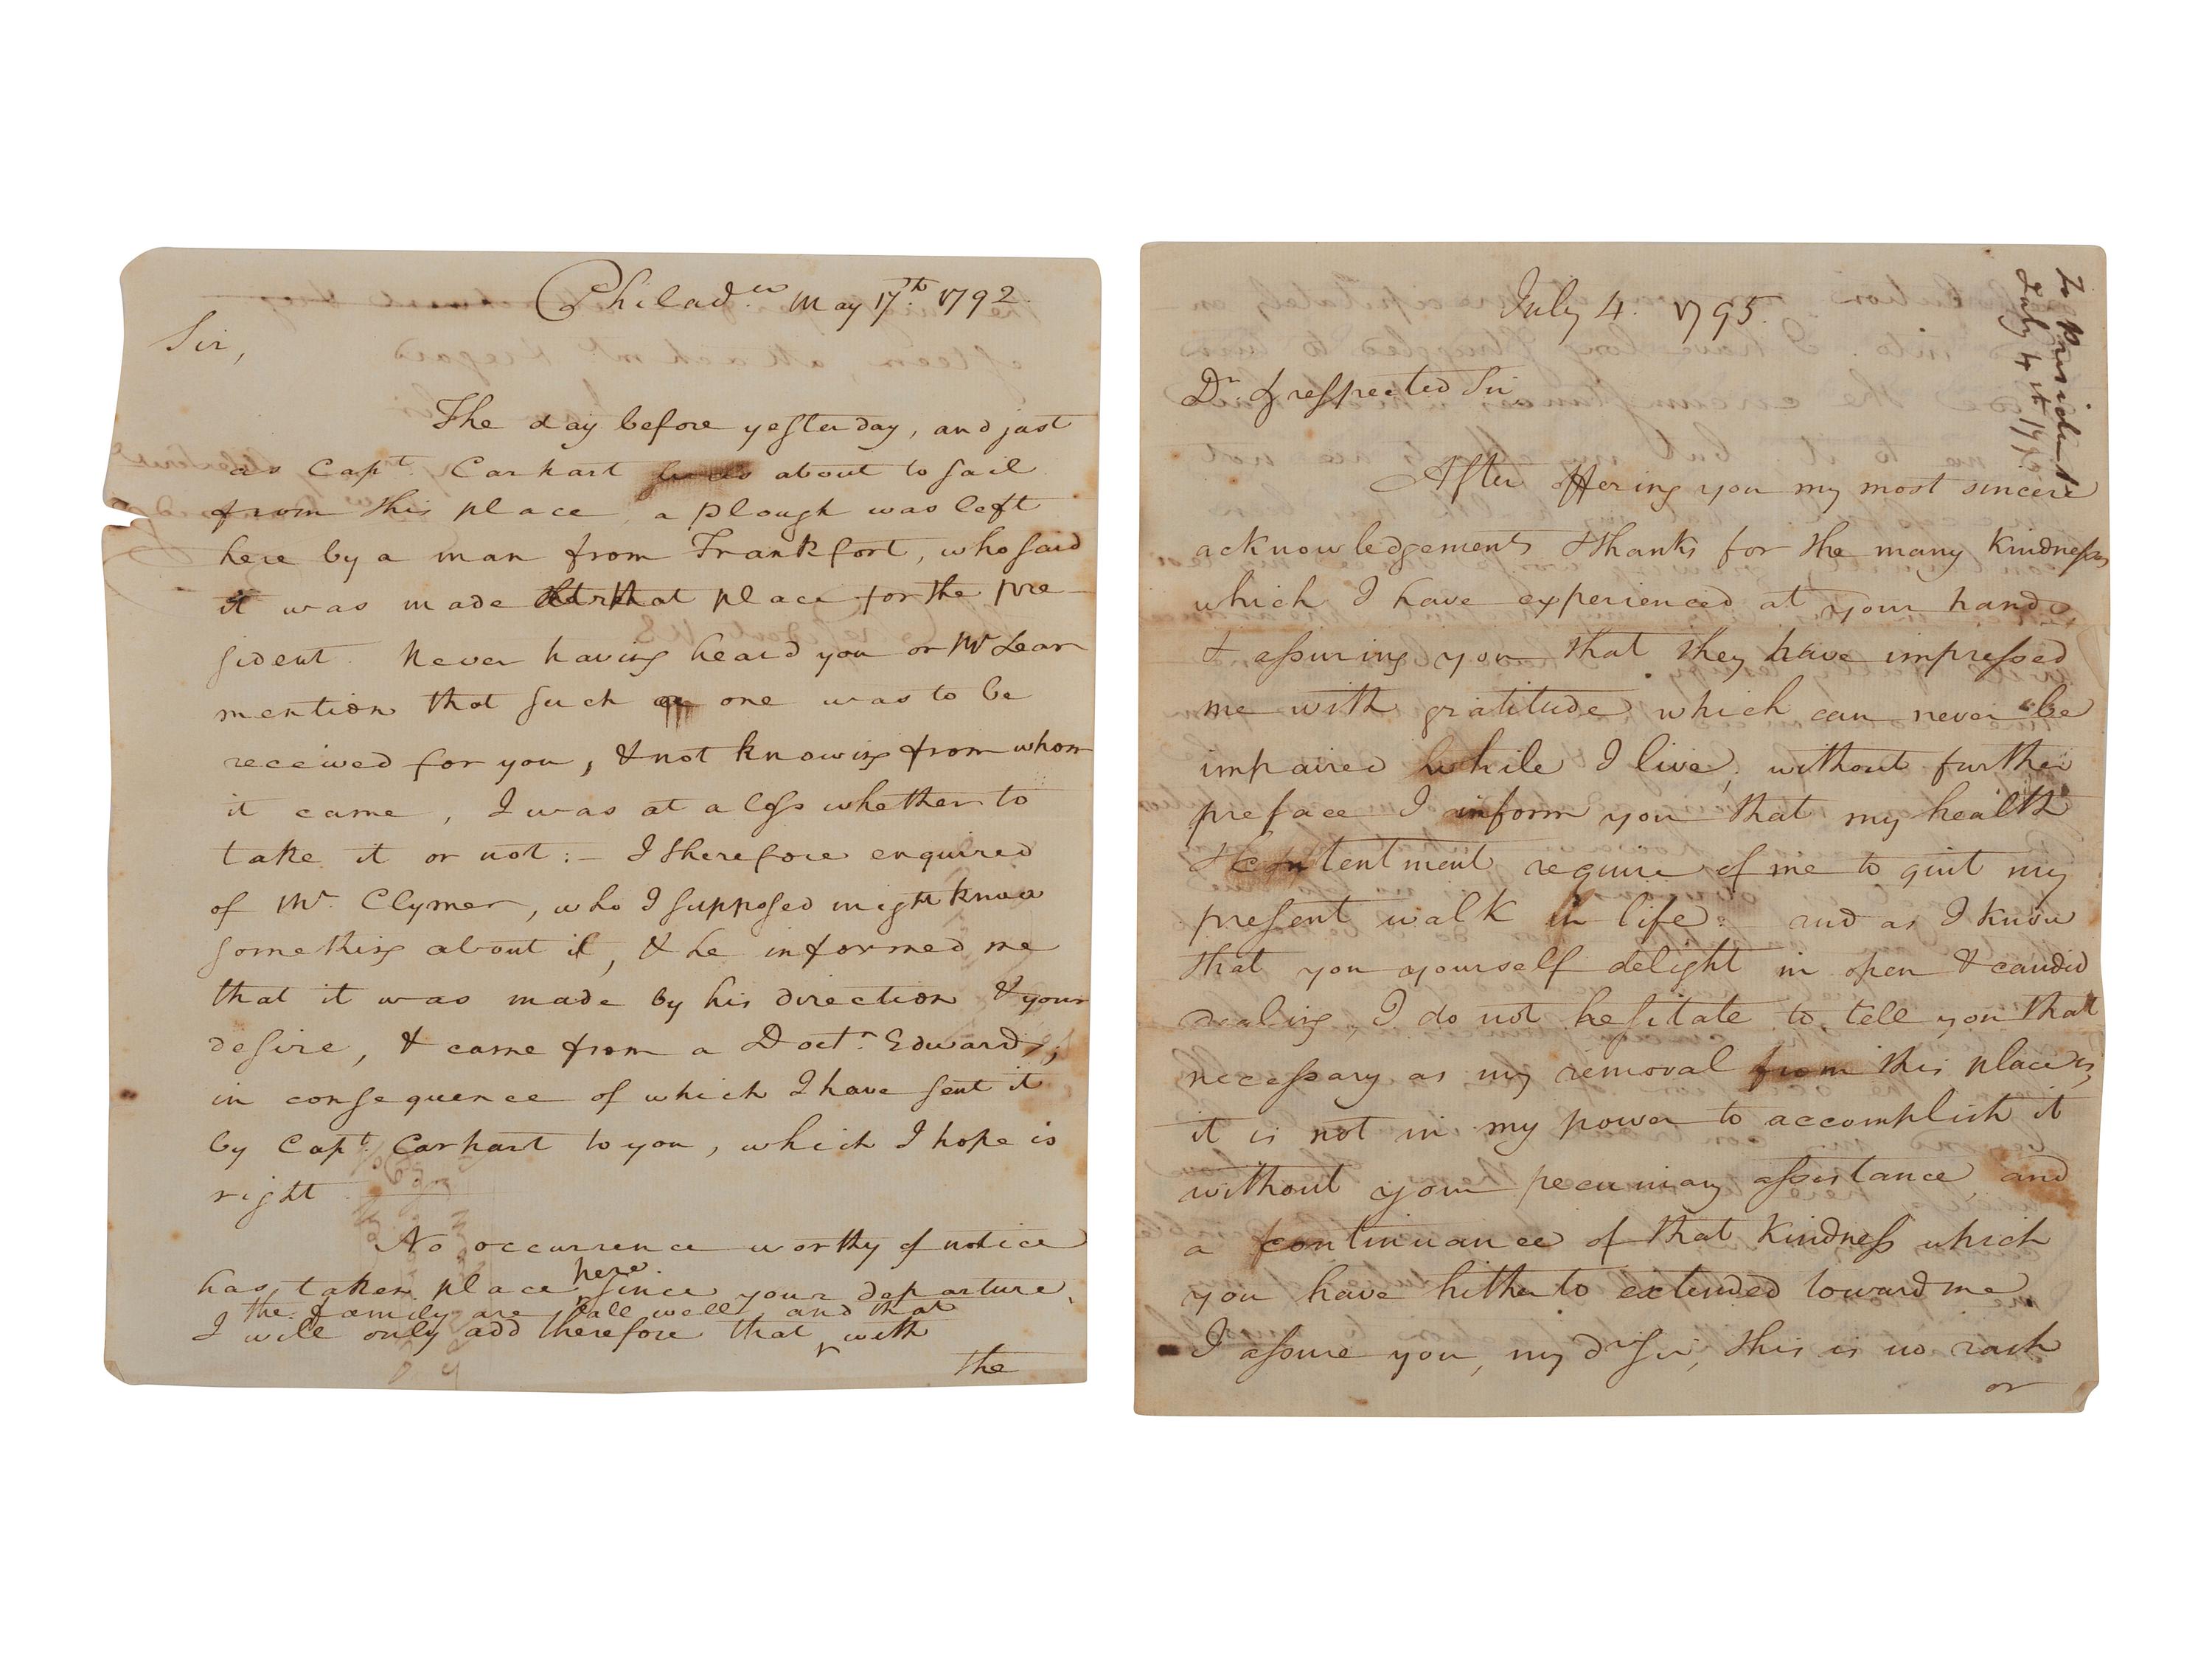 Philad.ia May 17.th 1792.
Sir,
The day before yesterday, and just
as Capt Carhart was about to sail
from this place, a plough was left
here by a man from Frankfort, who said
it was made at that place for the pre-
sident. Never having heard you or Mr Lear
mention that such a one was to be
received for you, & not knowing from whom
it came, I was at a loss whether to
take it or not:– I therefore enquired
of Mr Clymer, who I supposed might know
something about it, & he informed me
that it was made by his direction & your
desire, & came from a Doct.r Edwards;
in consequence of which I have sent it
by Capt. Carhart to you, which I hope is
right
No occurrence worthy of notice
has taken place here since your departure,
the family are all well, and that
I will only add therefore that with
the
July 4. 1795.
To President
July 4th 1795
Dr. & respected Sir
After offering you my most sincere
acknowledgements & thanks for the many kindnesses
which I have experienced at your hands
& assuring you that they have impressed
me with gratitude which can never be
impaired while I live, without further
preface I inform you that my health
& contentment require of me to quit my
present walk in life: and as I know
that you yourself delight in open & candid
dealing, I do not hesitate to tell you that
necessary as my removal from this place is,
it is not in my power to accomplish it
without your pecuniary assistance, and
a continuance of that kindness which
you have hitherto extended toward me
I assure you, my dr Sir, this is no rash
or